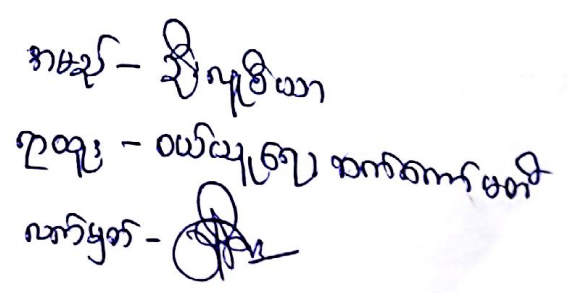 အမည် - ညီလူစီယာ
ရာထူး - ဝယ်ယူရေး ဆပ်ကော်မတီ
လက်မှတ် -